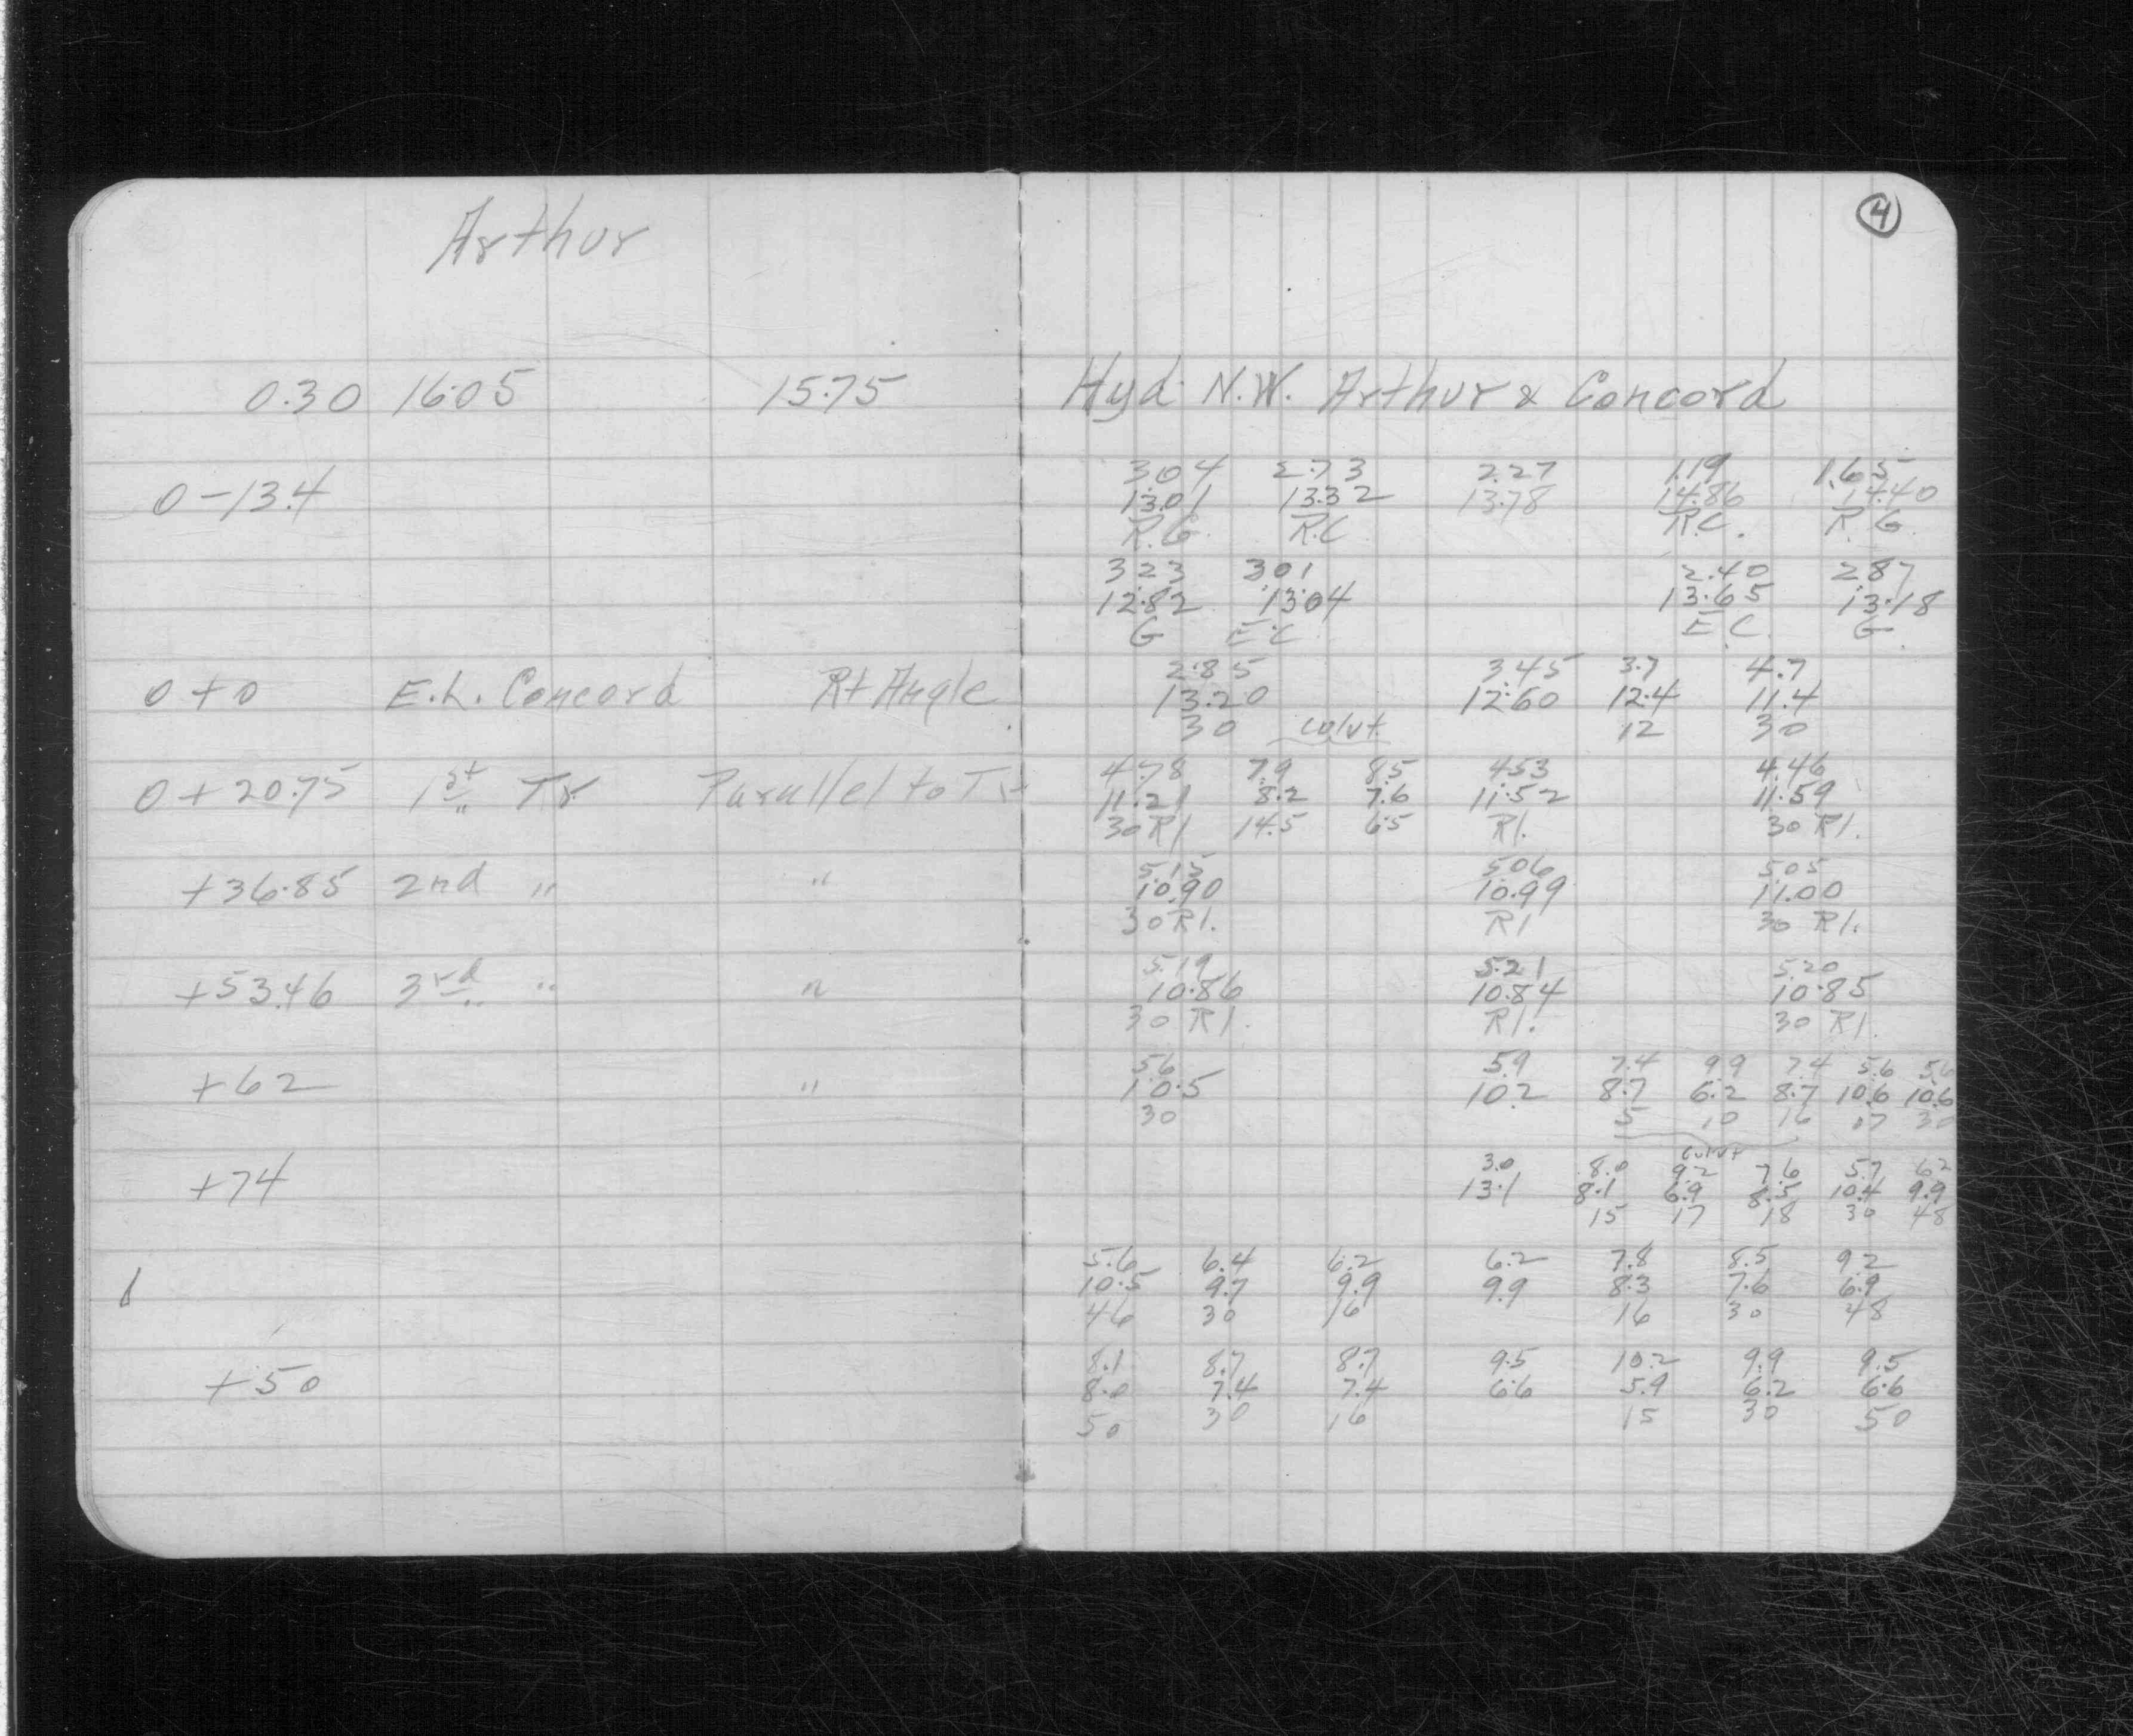 Arthur
4
0.30 16.05 15.75 Hyd. N.W. Arthur & Concord
3.04 2.73 2.27 1.19 1.65
0-13.4 13.01 13.32 13.78 14.86 14.40
R.G. R.C R.C. R.G.
3.23 3.01 2.40 2.87
12.82 13.04 13.65 13.18
G E.C E.C. G
2.85 3.45 3.7 4.7
0+0 E.L. Concord Rt Angle 13.20 12.60 12.4 11.4
30 culvt. 12 30
4.78 7.9 8.5 4.53 4.46
0+20.75 1st Tr. Parallel to Tr 11.21 8.2 7.6 11.52 11.59
30 Rl 14.5 6.5 Rl. 30 Rl.
5.15 5.06 5.05
+36.85 2nd " " 10.90 10.99 11.00
30 Rl. Rl 30 Rl.
5.19 5.21 5.20
+53.46 3rd " " 10.86 10.84 10.85
30 Rl. Rl. 30 Rl.
5.6 5.9 7.4 9.9 7.4 5.6 5.6
+62 " 10.5 10.2 8.7 6.2 8.7 10.6 10.6
30 5 10 16 17 30
culvt
3.0 8.0 9.2 7.6 5.7 6.2
+74 13.1 8.1 6.9 8.5 10.4 9.9
15 17 18 30 48
5.6 6.4 6.2 6.2 7.8 8.5 9.2
1 10.5 9.7 9.9 9.9 8.3 7.6 6.9
46 30 16 16 30 48
8.1 8.7 8.7 9.5 10.2 9.9 9.5
+50 8.0 7.4 7.4 6.6 5.9 6.2 6.6
50 30 16 15 30 50